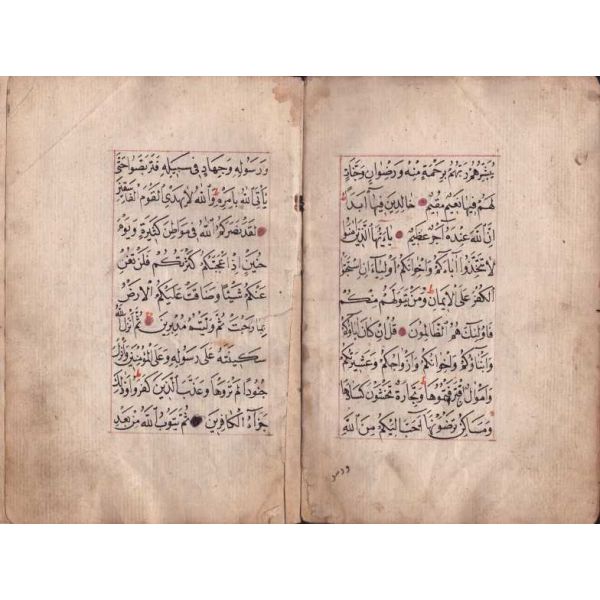 يُبَشِّرُهُمْ رَبُّهُمْ بِرَحْمَةٍ مِنْهُ وَرِضْوَانٍ وَجَنَّاتٍ
لَهُمْ فِيهَا نَعِيمٌ مُقِيمٌ خَالِدِينَ فِيهَا أَبَدًا
اِنَّ اللّٰهَ عِنْدَهُ أَجْرٌ عَظِيمٌ يَاءَيُّهَا الَّذِينَ اٰمَنُوا
لَا تَتَّخِذُوا اٰبَاءَكُمْ وَاِخْوَانَكُمْ اَوْلِيَاءَ اِنِ اسْتَحَبُّوا
الْكُفْرَ عَلَى الْاِيمَانِ وَمَنْ يَتَوَلَّهُمْ مِنْكُمْ
فَاُولٰئِكَ هُمُ الظَّالِمُونَ قُلْ اِنْ كَانَ اٰبَاؤُكُمْ
وَاَبْنَاؤُكُمْ وَاِخْوَانُكُمْ وَاَزْوَاجُكُمْ وَعَشِيرَتُكُمْ
وَاَمْوَالٌ اقْتَرَفْتُمُوهَا وَتِجَارَةٌ تَخْشَوْنَ كَسَادَهَا
وَمَسَاكِنُ تَرْضَوْنَهَا اَحَبَّ اِلَيْكُمْ مِنَ اللّٰهِ
وَرَسُو
وَرَسُولِهِ وَجِهَادٍ فِي سَبِيلِهِ فَتَرَبَّصُوا حَتّٰى
يَاْتِيَ اللّٰهُ بِاَمْرِهِ وَاللّٰهُ لَا يَهْدِي الْقَوْمَ الْفَاسِقِينَ
لَقَدْ نَصَرَكُمُ اللّٰهُ فِي مَوَاطِنَ كَثِيرَةٍ وَيَوْمَ
حُنَيْنٍ اِذْ اَعْجَبَتْكُمْ كَثْرَتُكُمْ فَلَمْ تُغْنِ
عَنْكُمْ شَيْئًا وَضَاقَتْ عَلَيْكُمُ الْاَرْضُ
بِمَا رَحُبَتْ ثُمَّ وَلَّيْتُمْ مُدْبِرِينَ ثُمَّ اَنْزَلَ اللّٰهُ
سَكِينَتَهُ عَلٰى رَسُولِهِ وَعَلَى الْمُؤْمِنِينَ وَاَنْزَلَ
جُنُودًا لَمْ تَرَوْهَا وَعَذَّبَ الَّذِينَ كَفَرُوا وَذٰلِكَ
جَزَاءُ الْكَافِرِينَ ثُمَّ يَتُوبُ اللّٰهُ مِنْ بَعْدِ